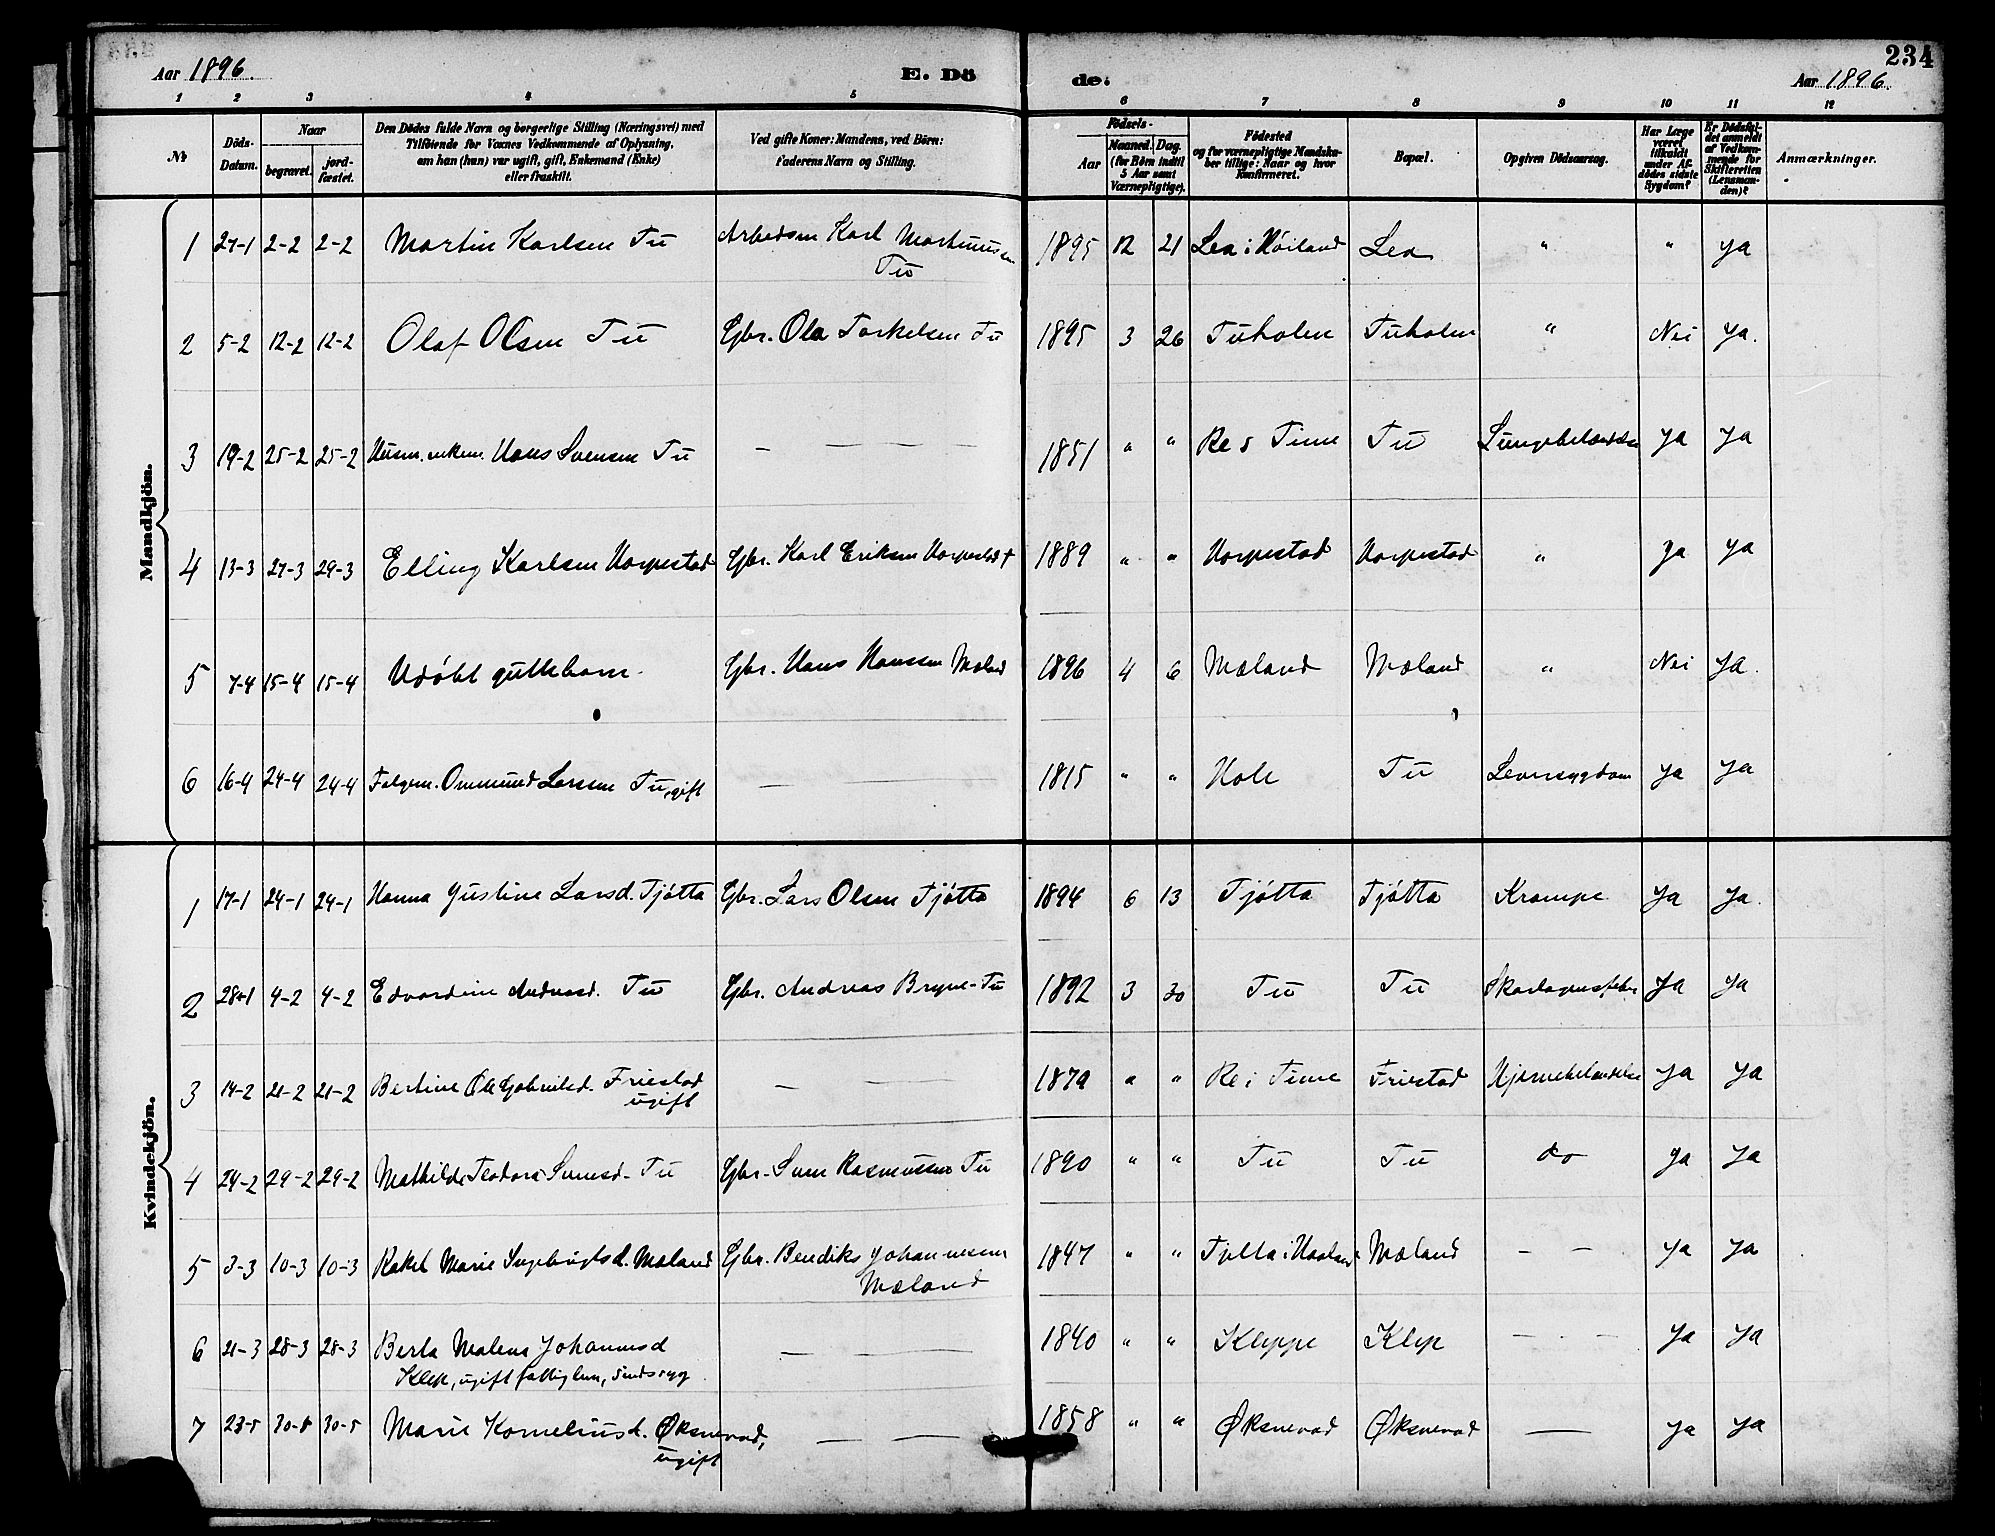 234
Aar 1896. E. Dö de. Aar 1896.
1 2 3 4 5 6 7 8 9 10 11 12
No
Döds-Datum.
Naar
begravet.
jord-fæstet.
Den Dödes fulde Navn og borgerlige Stilling (Næringsvei) med
Tilföiende for Voxnes Vedkommende af Oplysning,
om han (hun) var ugift, gift, Enkemand (Enke)
eller fraskilt.
Ved gifte Koner: Mandens, ved Börn:
Faderens Navn og Stilling.
Födsels-
Aar
Maaned. Dag.
(for Börn indtil
5 Aar samt
Værnepligtige).
Födested
og for værnepligtige Mandska-
ber tillige: Naar og hvor
Konfirmeret.
Bopæl.
Opgiven Dödsaarsag.
Har Læge
været
tilkaldt
under Af-
dödes sidste
Sygdom?
Er Dödsfal-
det anmeldt
af Vedkom-
mende for
Skifteretten
(Lensman-
den)?
Anmærkninger.
Mandkjön.
1 27-1 2-2 2-2 Martin Karlsen Tu Arbedsm Karl Martinussen 1895 12 21 Lea i Höiland Lea " " ja
Tu
2 5-2 12-2 12-2 Olaf Olsen Tu Gbr. Ola Torkelsen Tu 1895 3 26 Tuholen Tuholen " Nei ja.
3 19-2 25-2 25-2 Husm. enkem. Hans Svensen Tu — — — — 1851 " " Re i Time Tu Lungebetændelse ja ja
4 13-3 27-3 29-3 Elling Karlsen Horpestad Gbr. Karl Eriksen Horpestad † 1889 " " Horpestad Horpestad " ja ja
5 7-4 15-4 15-4 Udöbt guttebarn. Gbr. Hans Hanssen Mæland 1896 4 6 Mæland Mæland " Nei ja.
6 16-4 24-4 24-4 Folgem. Ommund Larsen Tu, gift — — 1815 " " Hole Tu Leversygdom ja ja
Kvindekjön.
1 17-1 24-1 24-1 Hanna Justine Larsd. Tjötta Gbr. Lars Olsen Tjötta 1894 6 13 Tjötta Tjötta Krampe ja ja.
2 28-1 4-2 4-2 Edvardine Andreasd. Tu Gbr. Andreas Bryne-Tu 1892 3 30 Tu Tu Skarlagensfeber ja ja
3 14-2 21-2 21-2 Bertine Gabrielsd. Friestad — — — 1879 " " Re i Time Friestad Hjernebetændelse ja ja
ugift
4 24-2 29-2 29-2 Mathilde Teodora Svensd. Tu Gbr. Sven Rasmussen Tu 1890 " " Tu Tu do ja ja
5 3-3 10-3 10-3 Rakel Marie Ingebrigtsd. Mæland Gbr. Bendiks Johannesen 1847 " " i Haaland Mæland — — ja ja
Mæland
6 21-3 28-3 28-3 Berta Malena Johannesd — — — 1840 " " Kleppe Klep — - — ja ja
Klep, ugift fattiglem, sindssyg
7 23-5 30-5 30-5 Marie Korneliusd. Öksnevad, — — — 1858 " " Öksnevad Öksnevad — ja ja
ugift